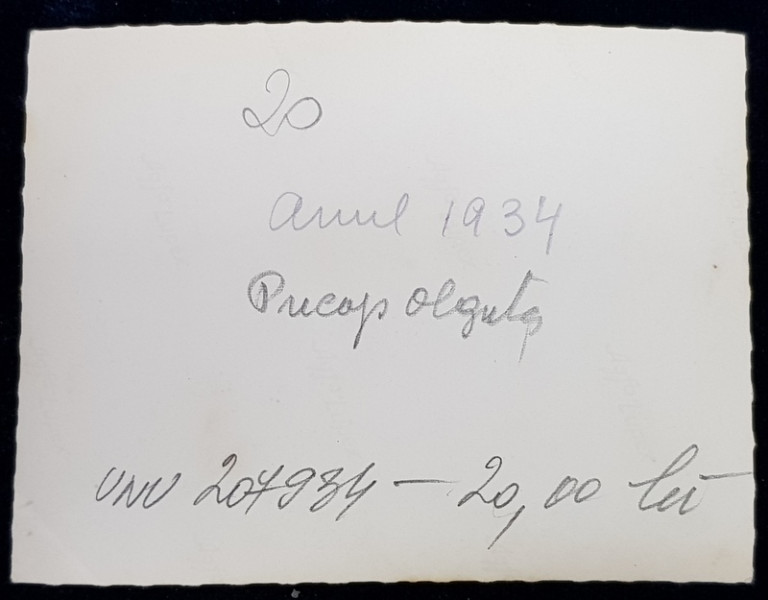 20
Anul 1934
Precop Olguța
UNU 207934 — 20,00 lei